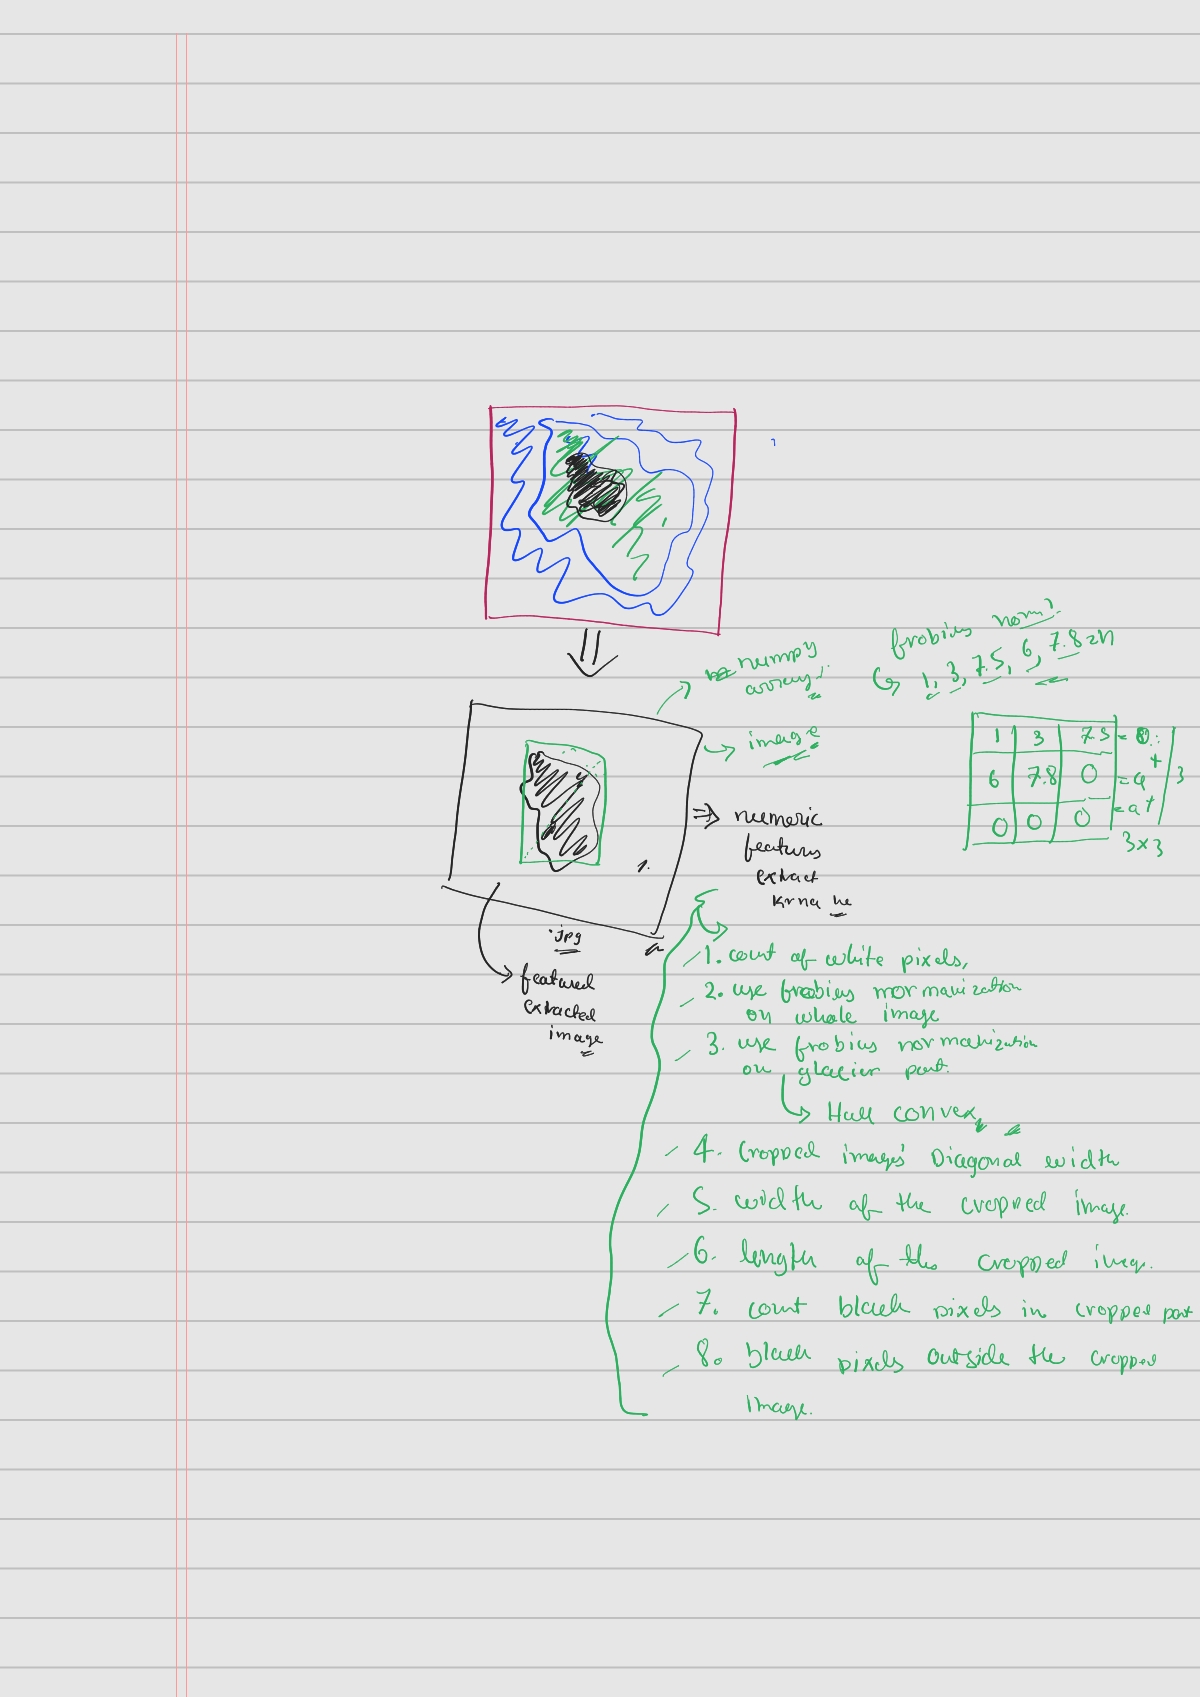 frobius norm?
1, 3, 7.5, 6, 7.8 = n
numpy
array
image
1 3 7.5
6 7.8 0
0 0 0
3
3x3
numeric
features
extract
krna he
.jpg
featured
extracted
image
1. count of white pixels,
2. use frobius normanization
on whole image
3. use frobius normalization
on glacier part.
Hull convex
4. Cropped images' Diagonal width
5. width of the cropped image.
6. length of the cropped image.
7. count black pixels in cropped part
8. black pixels outside the cropped
image.